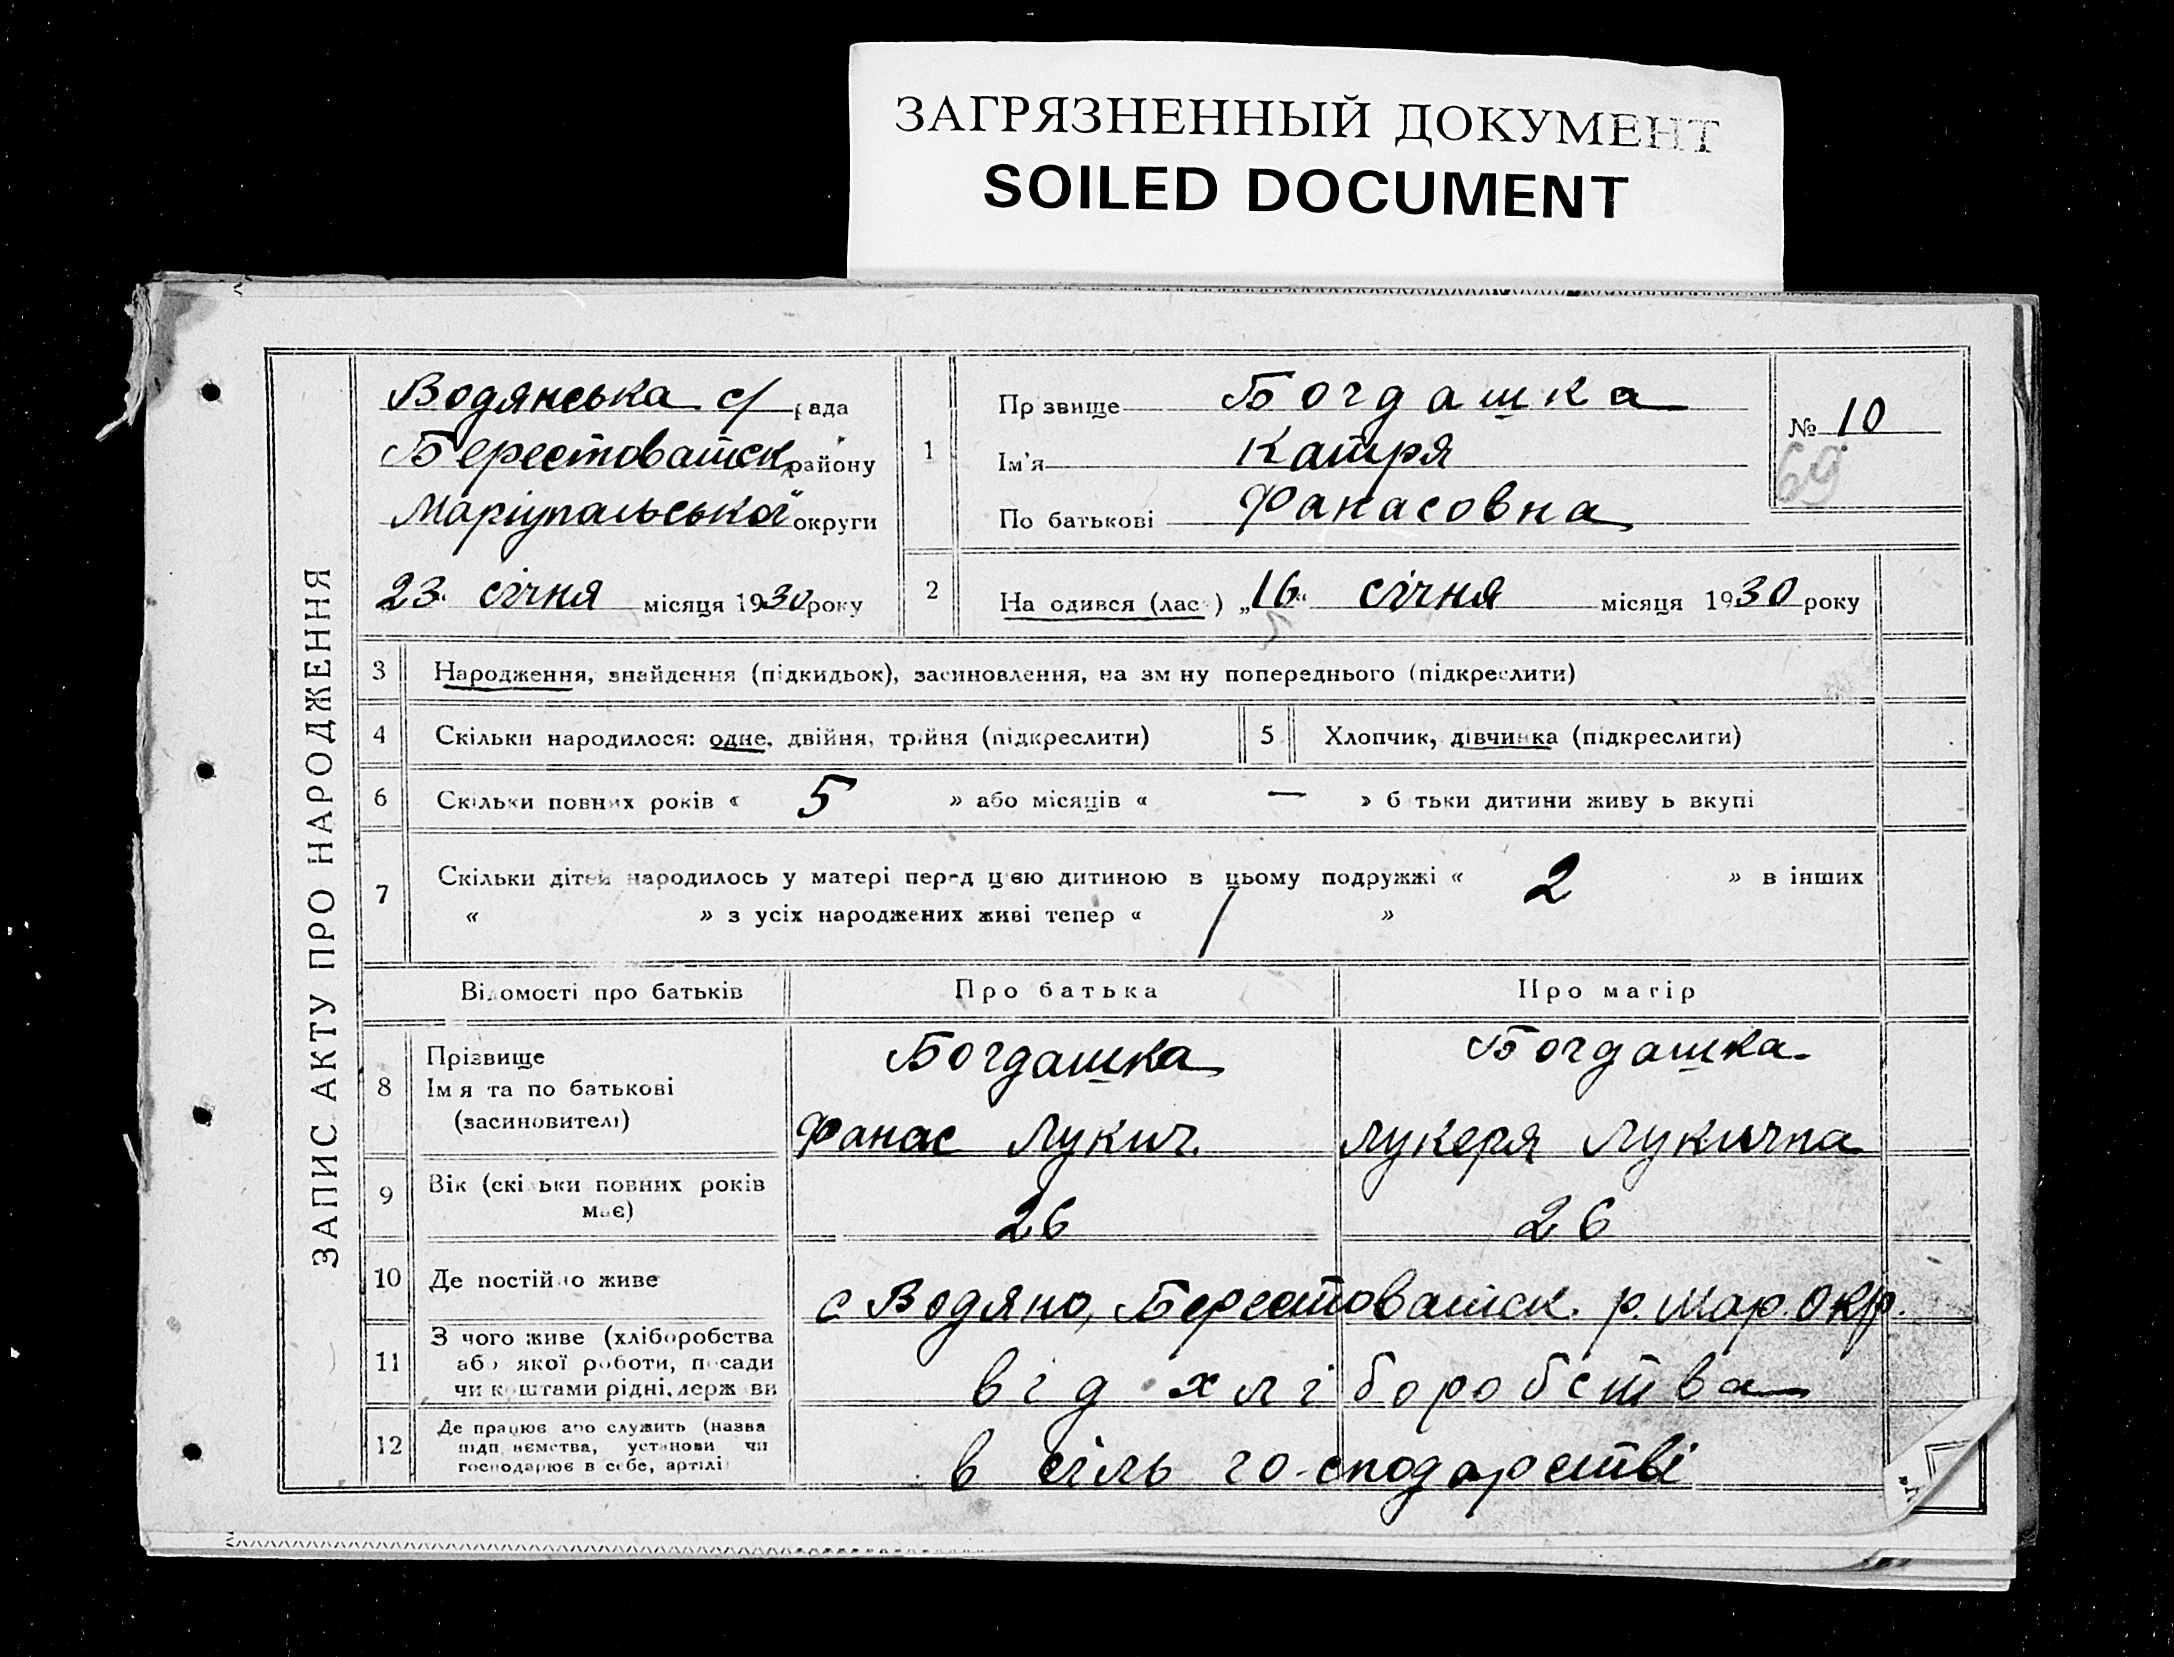 ЗАГРЯЗНЕННЫЙ ДОКУМЕНТ
SOILED DOCUMENT
ЗАПИС АКТУ ПРО НАРОДЖЕННЯ
Водянська с/ рада
Берестоватськ району
Маріупальської округи
23 січня місяця 1930 року
1
Прізвище Богдашка
Ім'я Катря
По батькові Фанасовна
№ 10
69
2 На одився (лась) „16“ січня місяця 1930 року
3 Народження, знайдення (підкидьок), засиновлення, на зміну попереднього (підкреслити)
4 Скільки народилося: одне, двійня, трійня (підкреслити)
5 Хлопчик, дівчинка (підкреслити)
6 Скільки повних років « 5 » або місяців « — » батьки дитини живуть вкупі
7 Скільки дітей народилось у матері перед цією дитиною в цьому подружжі « 2 » в інших
« » з усіх народжених живі тепер « 1 »
Відомості про батьків Про батька Про матір
8 Прізвище Богдашка Богдашка
Імя та по батькові
(засиновителі) Фанас Лукич. Лукеря Лукична
9 Вік (скільки повних років
має) 26 26
10 Де постійно живе с Водяно, Берестоватск. р. Мар. окр.
11 З чого живе (хліборобства
або якої роботи, посади
чи коштами рідні, держави від хліборобства
12 Де працює або служить (назва
підприємства, установи чи
господарює в себе, артілі в сіль господарстві